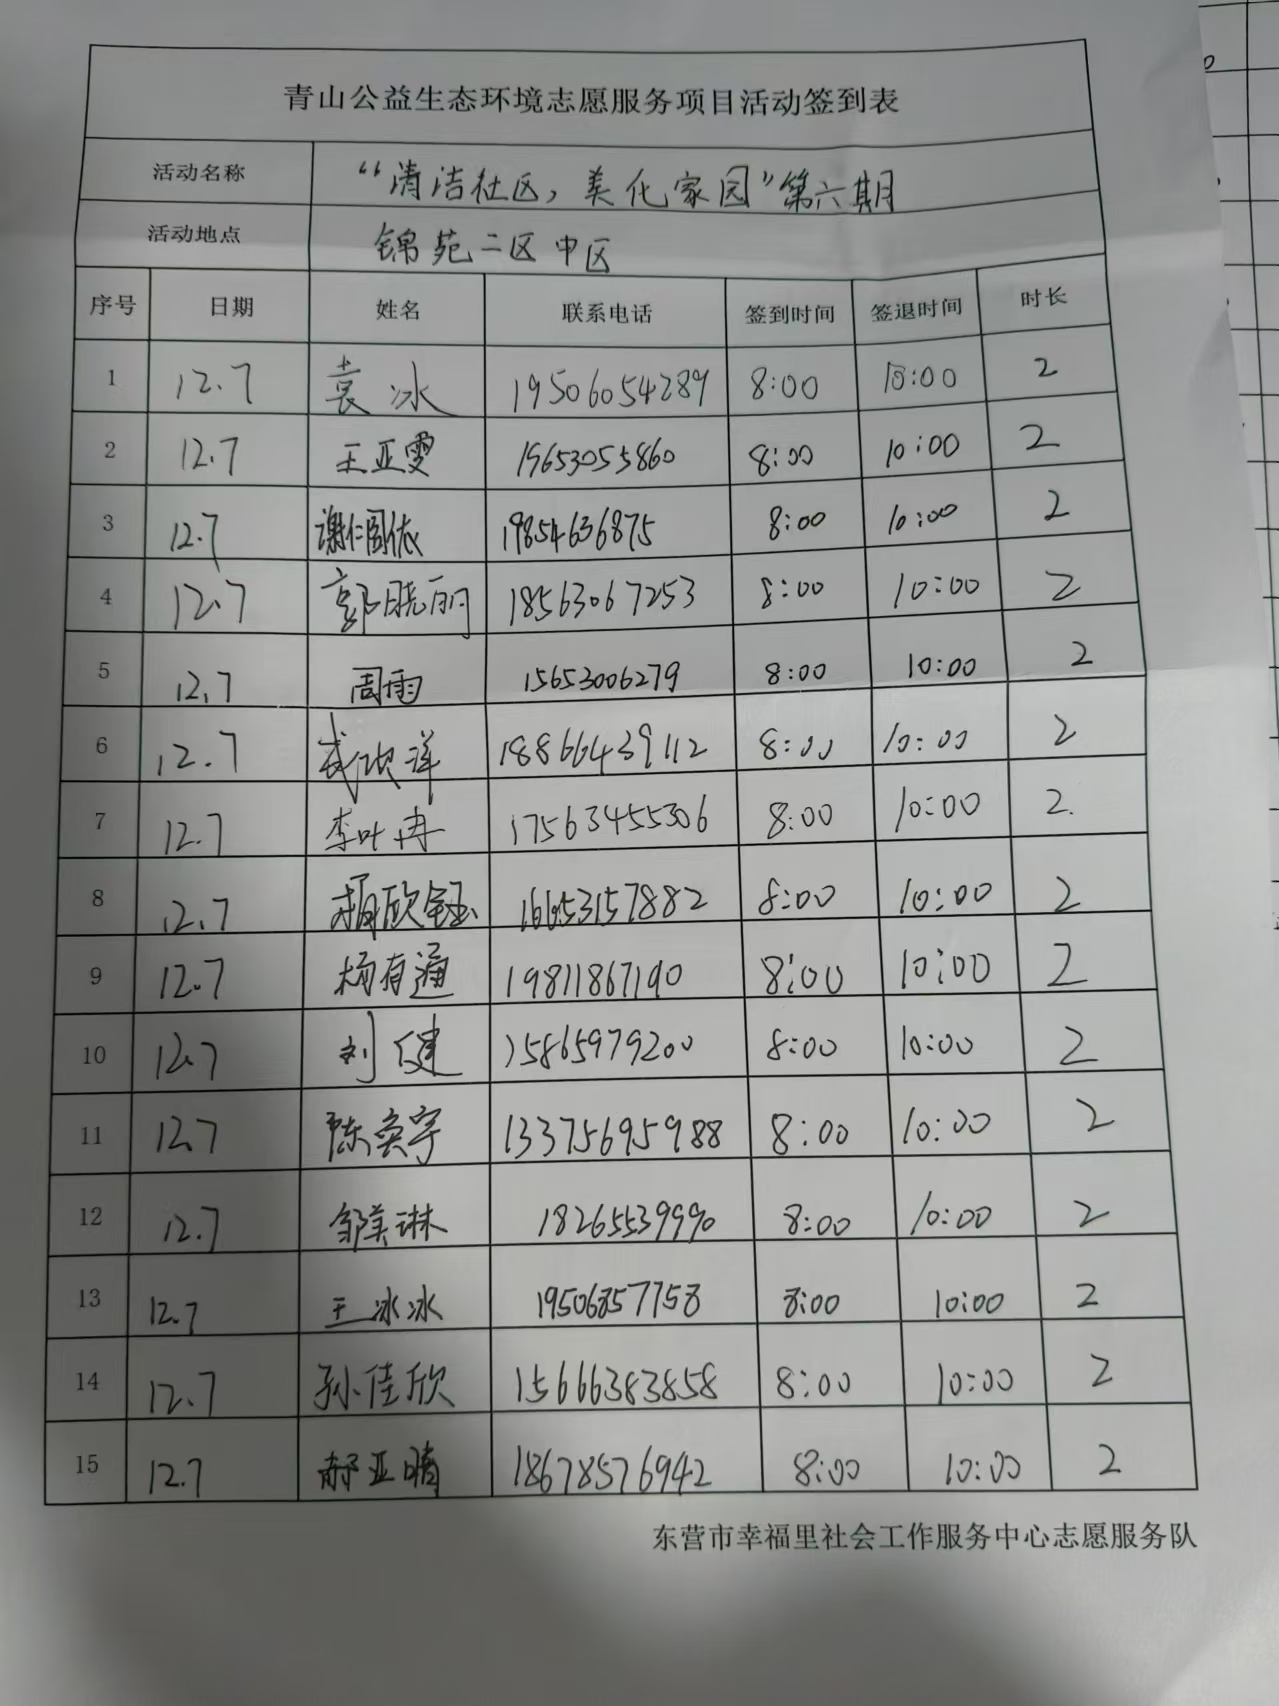 青山公益生态环境志愿服务项目活动签到表
活动名称 “清洁社区，美化家园”第六期
活动地点 锦苑二区中区
序号 日期 姓名 联系电话 签到时间 签退时间 时长
1 12.7 袁冰 19506054289 8:00 10:00 2
2 12.7 王亚雯 19653055860 8:00 10:00 2
3 12.7 谢仁周依 19854636875 8:00 10:00 2
4 12.7 郭晓丽 18563067253 8:00 10:00 2
5 12.7 周雨 15653006279 8:00 10:00 2
6 12.7 18866439112 8:00 10:00 2
7 12.7 李叶冉 17563455306 8:00 10:00 2
8 12.7 杨欣钰 16653157882 8:00 10:00 2
9 12.7 杨有通 19811867190 8:00 10:00 2
10 12.7 刘健 15865979200 8:00 10:00 2
11 12.7 陈奕宇 13375695988 8:00 10:00 2
12 12.7 邹美琳 18265539990 8:00 10:00 2
13 12.7 王冰冰 19506857758 8:00 10:00 2
14 12.7 孙佳欣 15666383858 8:00 10:00 2
15 12.7 郝亚晴 18678576942 8:00 10:00 2
东营市幸福里社会工作服务中心志愿服务队